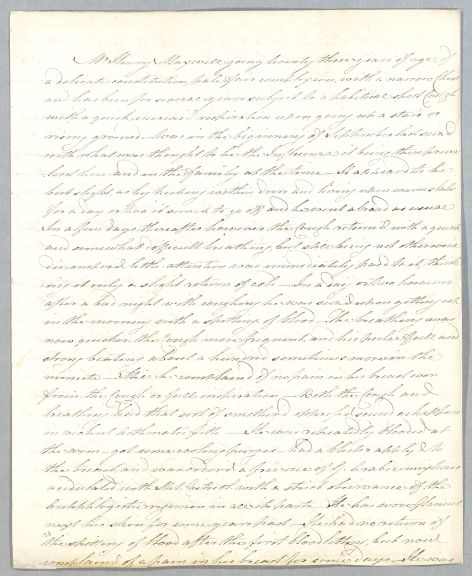 Mr Henry Maxwell going twenty three years of age, of
a delicate constitution, pale fair complexion, with a narrow Chest
and has been for several years subject to a habitual short Cough
with a quick respiration upon going up a stair or
rising ground. Was in the beginning of September last seized
with what was thought to be the Influenza it being then preva
lent here and in the family at the time — It appeared to be
but slight as by keeping within doors and living upon warm slops
for a day or two it seemed to go off and he went abroad as usual
In a few days thereafter however the Cough return'd with a quick
and somewhat difficult breathing, but still being not otherwise
indisposed little attention was immediately paid to it, think
ing it only a slight return of cold — In a day or two however
after a bad night with coughing he was seized upon getting up
in the morning with a spitting of blood. The breathing was
now quicker the Cough more frequent, and his pulse full and
strong beating about a hundred sometimes more in the
minute — Still he complained of no pain in his breast even
from the Cough or full inspiration — Both the Cough and
breathing had that sort of smothered sound as happens
in violent asthmatic fits — He was repeatedly blooded at
the arm — got some cooling purges — had a blister applyed to
the breast, and was ordered a free use of G. Arabic
acidulated with with a strict observance of the
Antiphlogistic regimen in all its parts. He has worn flannel
next his skin for some years past — He had no return of
the spitting of blood after the first blood letting, but now
complained of a pain in his breast for some days — He was